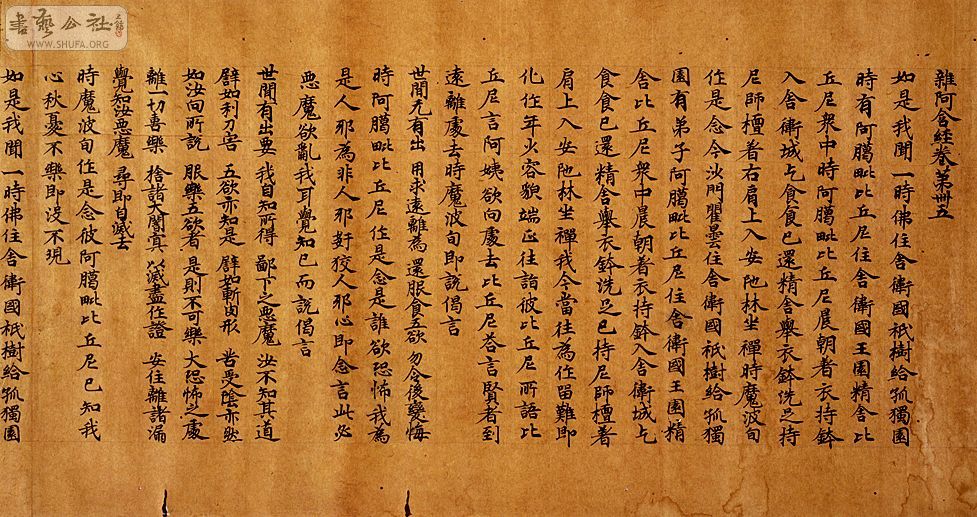 雜阿含經卷第卌五
如是我聞一時佛住舍衛國祇樹給孤獨園
時有阿臈毗比丘尼住舍衛國王園精舍比
丘尼衆中時阿臈毗比丘尼晨朝着衣持鉢
入舍衛城乞食食已還精舍舉衣鉢洗足持
尼師檀着右肩上入安陁林坐禪時魔波旬
作是念今沙門瞿曇住舍衛國祇樹給孤獨
園有弟子阿臈毗比丘尼住舍衛國王園精
舍比丘尼衆中晨朝着衣持鉢入舍衛城乞
食食已還精舍舉衣鉢洗足已持尼師檀着
肩上入安陁林坐禪我今當往爲作留難即
化作年少容貌端正往詣彼比丘尼所語比
丘尼言阿姨欲向處去比丘尼荅言賢者到
遠離處去時魔波旬即說偈言
世間无有出 用求遠離爲 還服食五欲 勿令後變悔
時阿臈毗比丘尼作是念是誰欲恐怖我爲
是人耶爲非人耶姧狡人耶心即念言此必
惡魔欲亂我耳覺知已而說偈言
世間有出要 我自知所得 鄙下之惡魔 汝不知其道
譬如利刀害 五欲亦如是 譬如斬肉形 苦受陰亦然
如汝向所說 服樂五欲者 是則不可樂 大恐怖之處
離一切喜樂 捨諸大闇冥 以滅盡作證 安住離諸漏
覺知汝惡魔 尋即自滅去
時魔波旬作是念彼阿臈毗比丘尼已知我
心愁憂不樂即沒不現
如是我聞一時佛住舍衛國祇樹給孤獨園
書藝公社
WWW.SHUFA.ORG